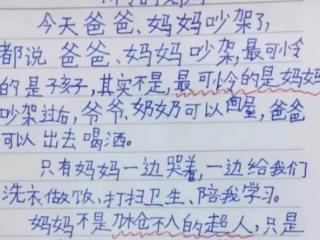 今天爸爸、妈妈吵架了,
都说爸爸、妈妈吵架,最可怜
的是孩子,其实不是,最可怜的是妈妈
吵架过后,爷爷、奶奶可以回屋,爸爸
可以出去喝酒。
只有妈妈一边哭着,一边给我们
洗衣做饭、打扫卫生、陪我学习。
妈妈不是刀枪不入的超人,只是